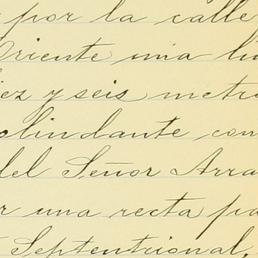 por la calle
Oriente una
iez y seis metr
olindante con
del Señor Arra
r una recta pa
Septentrional,